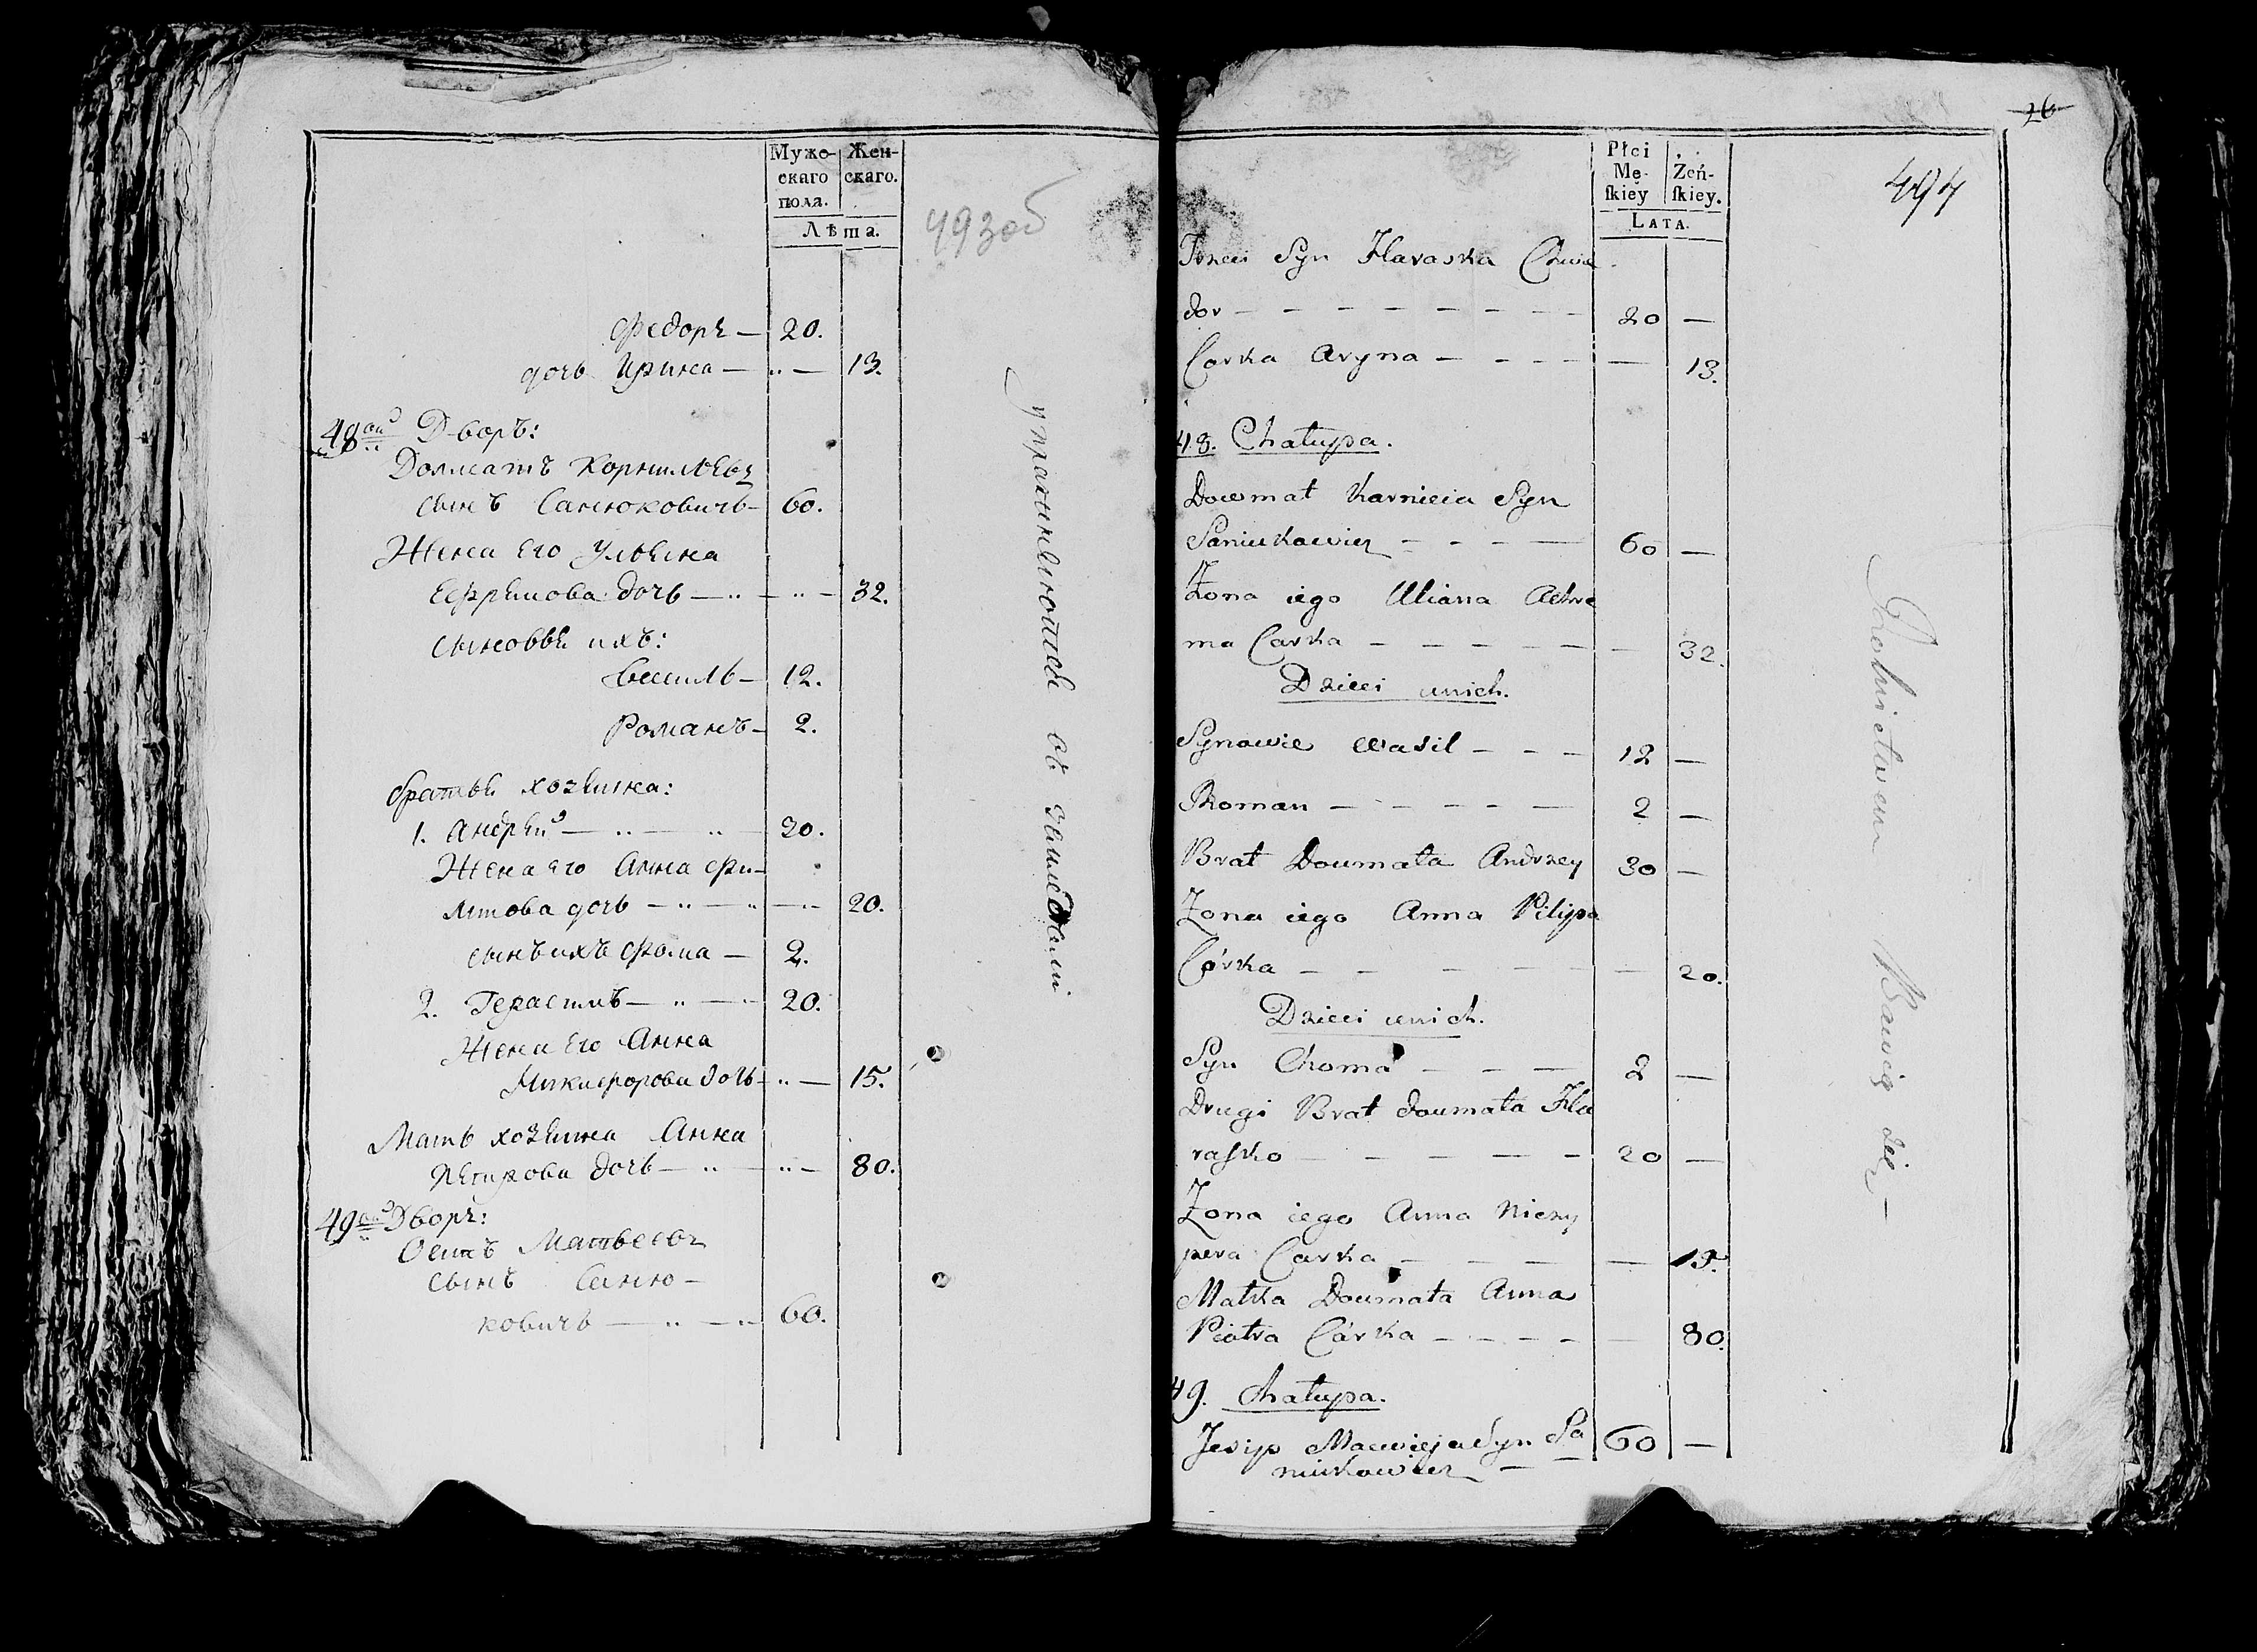 Муже-
скаго
пола.
Жен-
скаго.
Лѣта.
493об
Федоръ — 20.
дочь Ирина — 13.
48ой Дворъ:
Домматъ Корнилѣевъ
сынъ Санюковичь — 60.
Жена его Ульяна
Ефремова дочь — 32.
сыновья ихъ:
Василь — 12.
Романъ — 2.
братья хозяина:
1. Андрей — 30.
Жена его Анна Фи-
липова дочь — 20.
сынъ ихъ Фома — 2.
2. Герасимъ — 20.
Жена его Анна
Никифорова дочь — 15.
Мать хозяина Анна
Петрова дочь — 80.
49ой Дворъ:
Осипъ Матвеевъ
сынъ Саню-
ковичь — 60.
упражняются въ земледелии
26
494
Płci
Mę-
ſkiey
Żeń-
ſkiey.
LATA.
Trzeci Syn Haraska Chwie
dor — 20 —
Corka Aryna — 13.
48. Chałupa.
Dowmat Karnieia Syn
Saniukowicz — 60 —
Żona iego Uliana Achre
ma Carka — 32.
Dzieci u nich.
Synowie Wasil — 12 —
Roman — 2 —
Brat Doumata Andrzey 30 —
Żona iego Anna Pilipa
Córka — 20.
Dzieci u nich.
Syn Choma — 2 —
Drugi Brat Doumata Ha
raſko — 20 —
Żona iego Anna Niczy
pera Carka — 15.
Matka Doumata Anna
Piotra Cárka — 80.
49. Chałupa.
Jesip Macwieja Syn Sa 60 —
niukowicz —
Rolnictwem Bawią się —